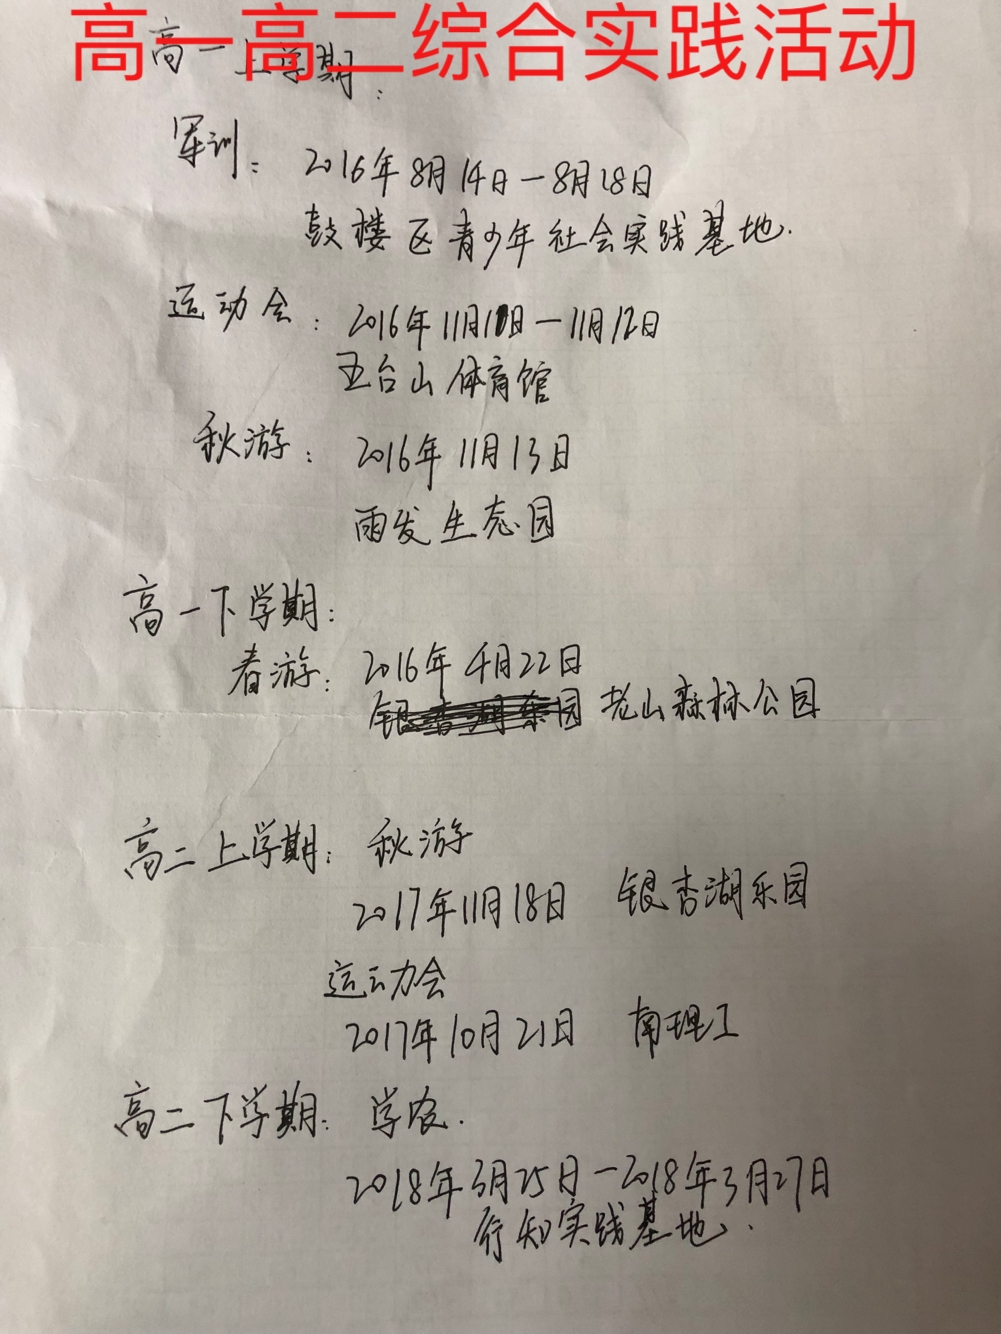 高一高二综合实践活动
高一上学期:
军训: 2016年8月14日—8月18日
鼓楼区青少年社会实践基地.
运动会: 2016年11月11日—11月12日
五台山体育馆
秋游: 2016年11月13日
雨发生态园
高一下学期:
春游: 2016年4月22日
银杏湖乐园 老山森林公园
高二上学期: 秋游
2017年11月18日 银杏湖乐园
运动会
2017年10月21日 南理工
高二下学期: 学农.
2018年3月25日—2018年3月27日
行知实践基地.